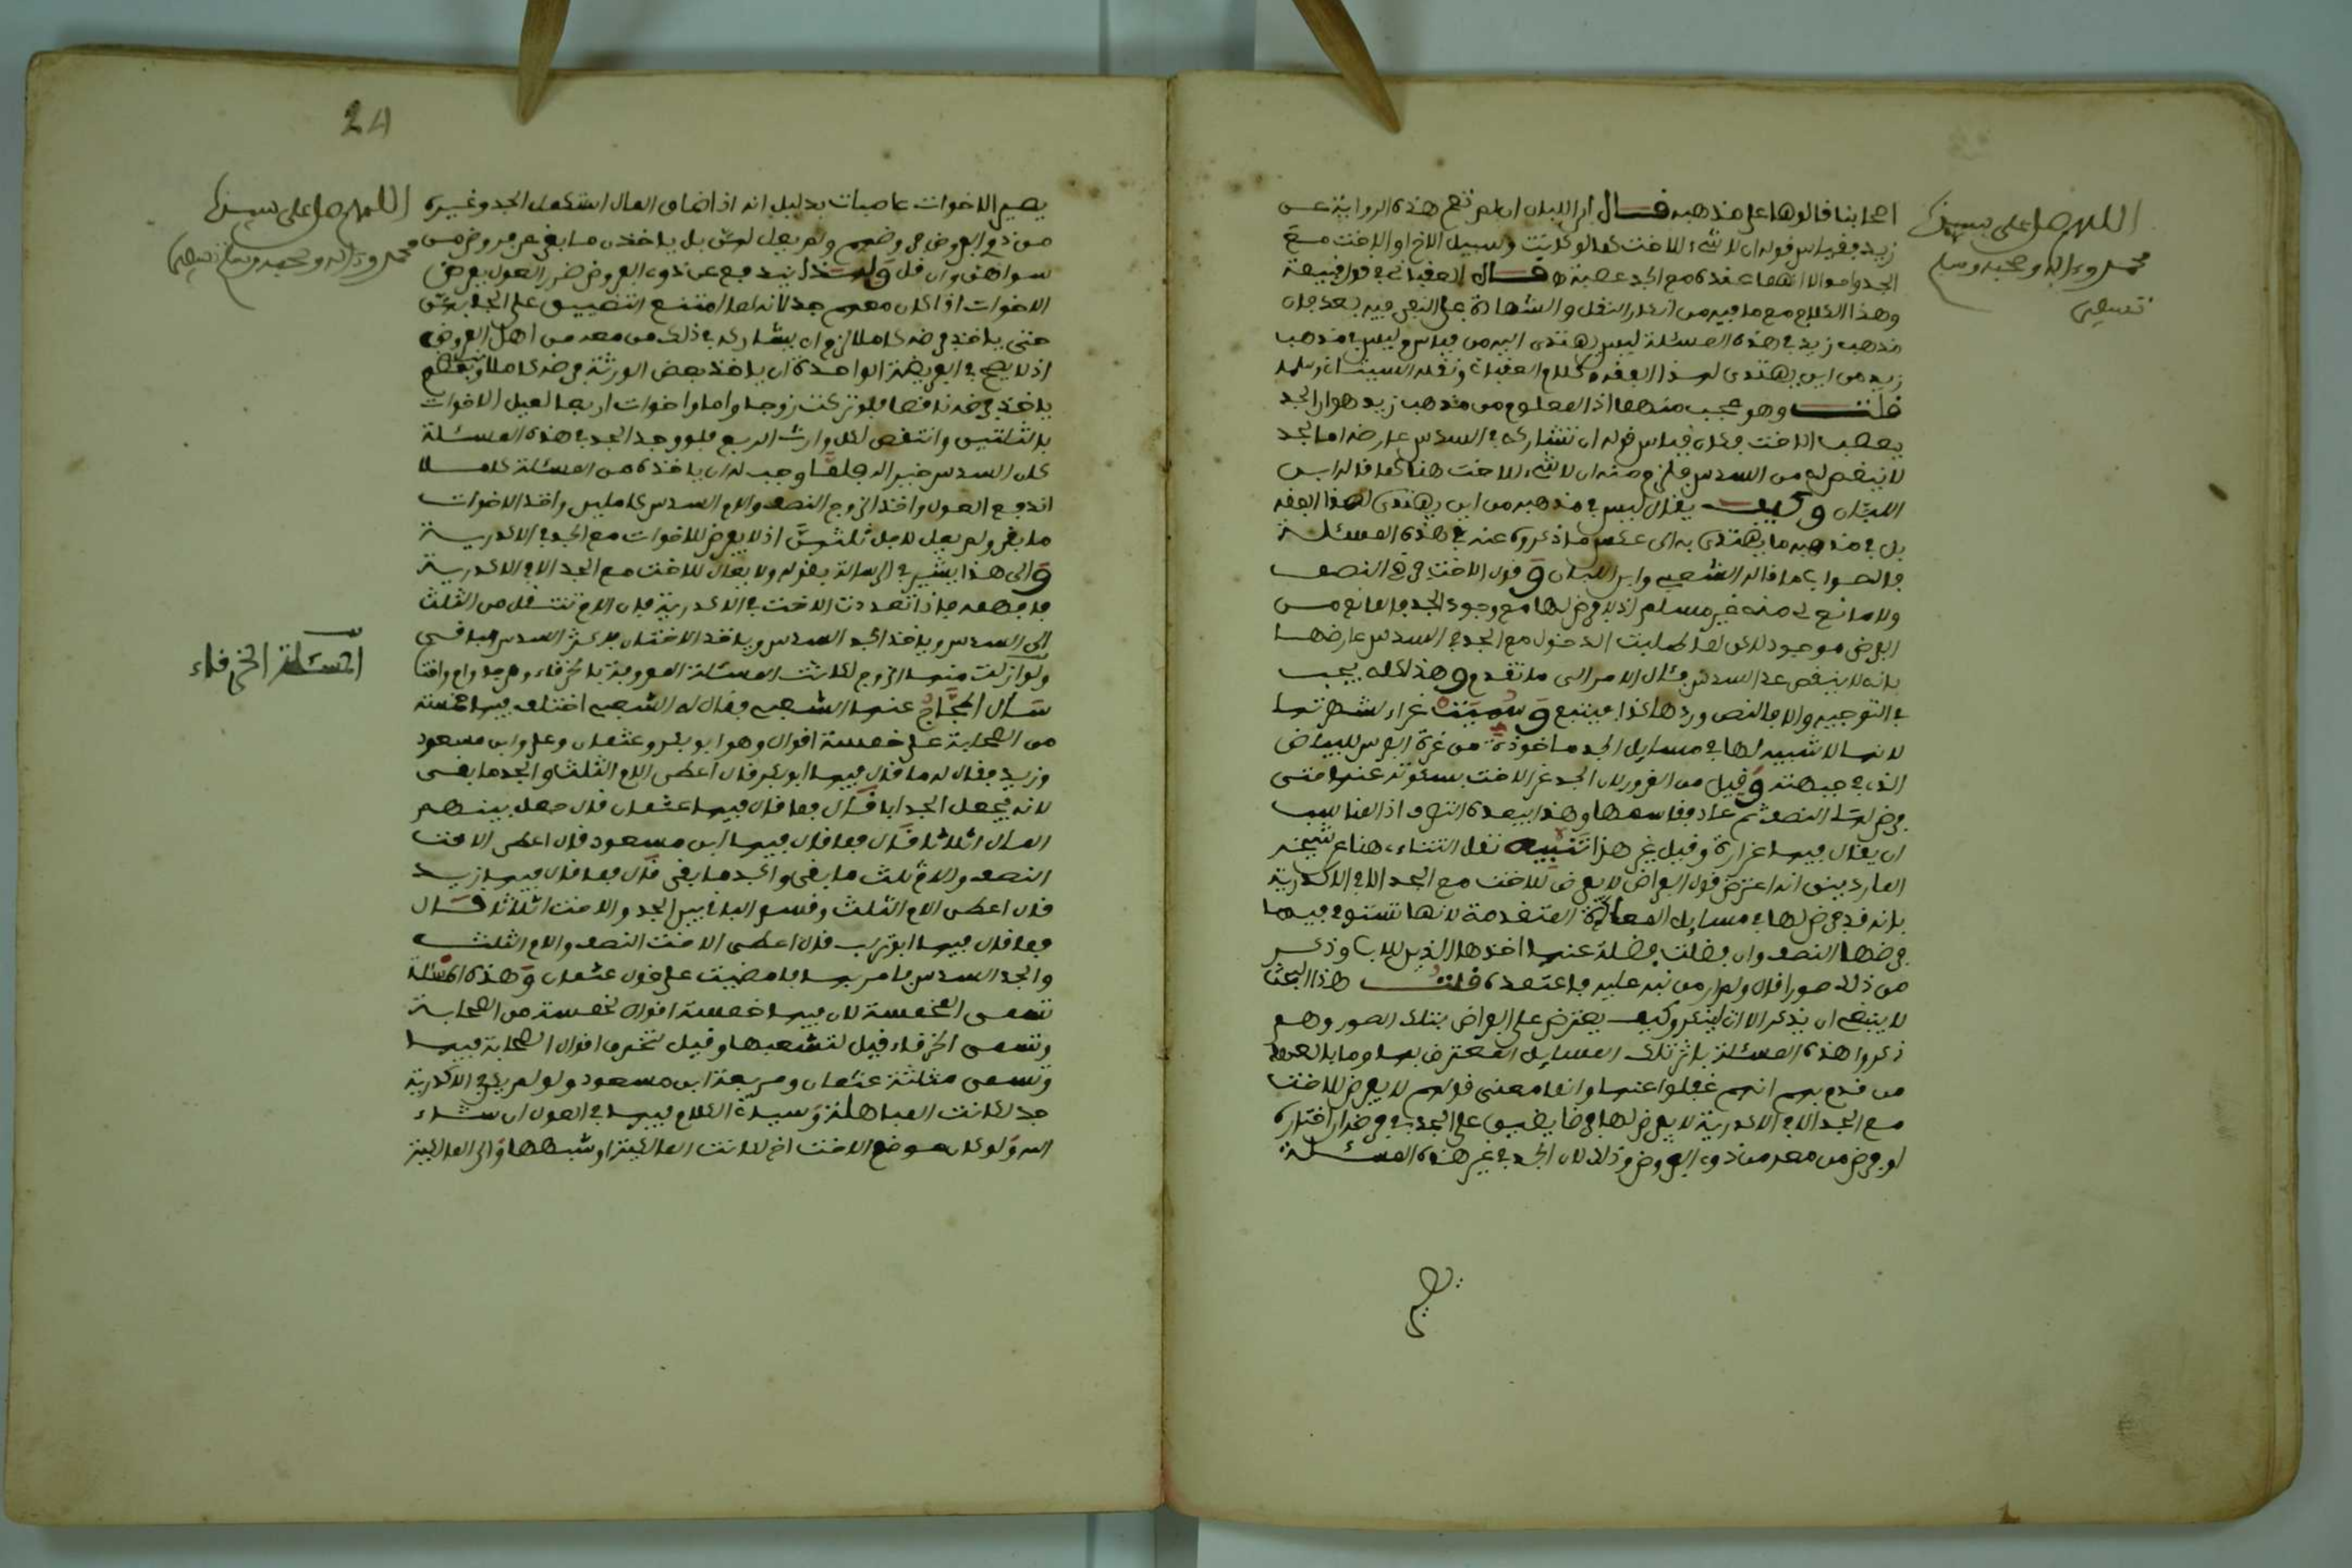 اللهم صل على سيدنا
محمد وءاله وصحبه وسلم
تسليما
اصحابنا قالوها على مذهبه قال ابن اللبان ان لم تصح هذه الرواية عن
زيد فقياس قوله ان لا شيء للاخت كما لو كانت وسبيل الاخ او الاخت مع
الجد واحد لا انهما عنده مع الجد عصبة قال العقباني في قول قبيصة
وهذا الكلام مع ما فيه من انكار النقل والشهادة على النفي فيه بعد فان
مذهب زيد في هذه المسئلة ليس يهتدى اليه من قياس وليس في مذهب
زيد من اين يهتدى لهذا الفقه كلام العقباني ونقله السيتاني وسلمه
قلت وهو عجب منهما اذ المعلوم من مذهب زيد هو ان الجد
يعصب الاخت فكان قياس قوله ان تشاركه في السدس عارضه ان الجد
لا ينقص له من السدس فلزم منه ان لا شيء للاخت هنا كما قاله ابن
اللبان وكيف يقال ليس في مذهبه من اين يهتدى لهذا الفقه
بل في مذهبه ما يهتدى به الى عكس ما ذكروه عنه في هذه المسئلة
فالصواب ما قاله الشعبي وابن اللبان وقول الاخت فرضي النصف
ولا مانع لي منه غير مسلم اذ لا فرض لها مع وجود الجد فالمانع من
الفرض موجود لكن لما طلبت الدخول مع الجد في السدس عارضها
بانه لا ينقص عن السدس فئال الامر الى ما تقدم وهذا كله يجب
في التوجيه والا فالنص وردها كذا فيتبع وسميت غراء لشهرتها
لانها لا شبيه لها في مسايل الجد ماخوذة من غرة الفرس للبياض
الذي في جبهته وقيل من الغرور لان الجد غر الاخت بسكوته عنها حتى
فرض لها النصف ثم عاد فقاسمها وهذا يبعده التعريف اذ المناسب
ان يقال فيها غرارة وقيل غير هذا تنبيه نقل التتاءي هنا عن شيخه
المارديني انه اعترض قول الفراض لا يفرض للاخت مع الجد الا في الاكدرية
بانه قد فرض لها في مسايل المعادة المتقدمة لانها تستوفي فيها
فرضها النصف وان فضلت فضلة عنها اخذها الذين للاب وذكر
من ذلك صورا قال ولم ار من نبه عليه فاعتمده قلت هذا البحث
لا ينبغي ان يذكر الا ان لينكر وكيف يعترض على الفراض بتلك الصور وهم
ذكروا هذه المسئلة باثر تلك المسايل المعترض بها وما بالعهد
من قدم بهم انهم غفلوا عنها وانما معنى قولهم لا يفرض للاخت
مع الجد الا في الاكدرية لا يفرض لها فرضا يضيق على الجد في فرض اراد اختاره
او فرض من معه من ذوي الفروض وذلك لان الجد في غير هذه المسئلة
24
اللهم صل على سيدنا
محمد وءاله وصحبه وسلم تسليما
يصير الاخوات عاصبات بدليل انه اذا ضاق المال استكمل الجد وغيره
من ذوي الفروض فروضهم ولم يعل لهن بل ياخذن ما بقي عن فروض من
سواهن وان قل ولهذا يندفع عن ذوي الفروض ضرر العول بفرض
الاخوات اذا كان معهم جد لانه لما امتنع التضييق على الجد بهن
حتى ياخذ فرضه كاملا لزم ان يشاركه في ذلك من معه من اهل الفروض
اذ لا يصح في الفريضة الواحدة ان ياخذ بعض الورثة فرضه كاملا وبعضهم
ياخذ فرضه ناقصا فلو تركت زوجا واما واخوات اربعا لعيل للاخوات
بالثلثين وانتقص لكل وارث الربع فلو وجد الجد في هذه المسئلة
كان السدس خير اله فلما وجب له ان ياخذه من المسئلة كاملا
اندفع العول واخذ الزوج النصف والام السدس كاملين واخذ الاخوات
ما بقي ولم يعل لاجل ثلثيهن اذ لا يفرض للاخوات مع الجد في الاكدرية
والى هذا يشير في الرسالة بقوله ولا يعال للاخت مع الجد الا في الاكدرية
فافهمه فاذا تعددت الاخت في الاكدرية فان الام تنتقل من الثلث
الى السدس وياخذ الجد السدس وياخذ الاختان فاكثر السدس الباقي
المسئلة الخرقاء
ولو ازلت منها الزوج لكانت المسئلة المعروفة بالخرقاء وهي جد وام واخت
سأل الحجاج عنها الشعبي فقال له الشعبي اختلف فيها خمسة
من الصحابة على خمسة اقوال وهو ابو بكر وعثمان وعلي وابن مسعود
وزيد فقال له ما قال فيها ابو بكر قال اعطى الام الثلث والجد ما بقي
لانه يجعل الجد ابا قال فما قال فيها عثمان قال جعل بينهم
المال اثلاثا قال فما قال فيها ابن مسعود قال اعطى الاخت
النصف والام ثلث ما بقي والجد ما بقي قال فما قال فيها زيد
قال اعطى الام الثلث وقسم الباقي بين الجد والاخت اثلاثا قال
فما قال فيها ابو تراب قال اعطى الاخت النصف والام الثلث
والجد السدس فامر بها فامضيت على قول عثمان وهذه المسئلة
تسمى المخمسة لان فيها خمسة اقوال لخمسة من الصحابة
وتسمى الخرقاء قيل لتشعبها وقيل لتخرق اقوال الصحابة فيها
وتسمى مثلثة عثمان ومربعة ابن مسعود ولو لم يكن في الاكدرية
جد لكانت المباهلة وسياتي الكلام فيها في العول ان شاء
الله ولو كان موضع الاخت اخ لكانت المالكية او شبهها والى المالكية